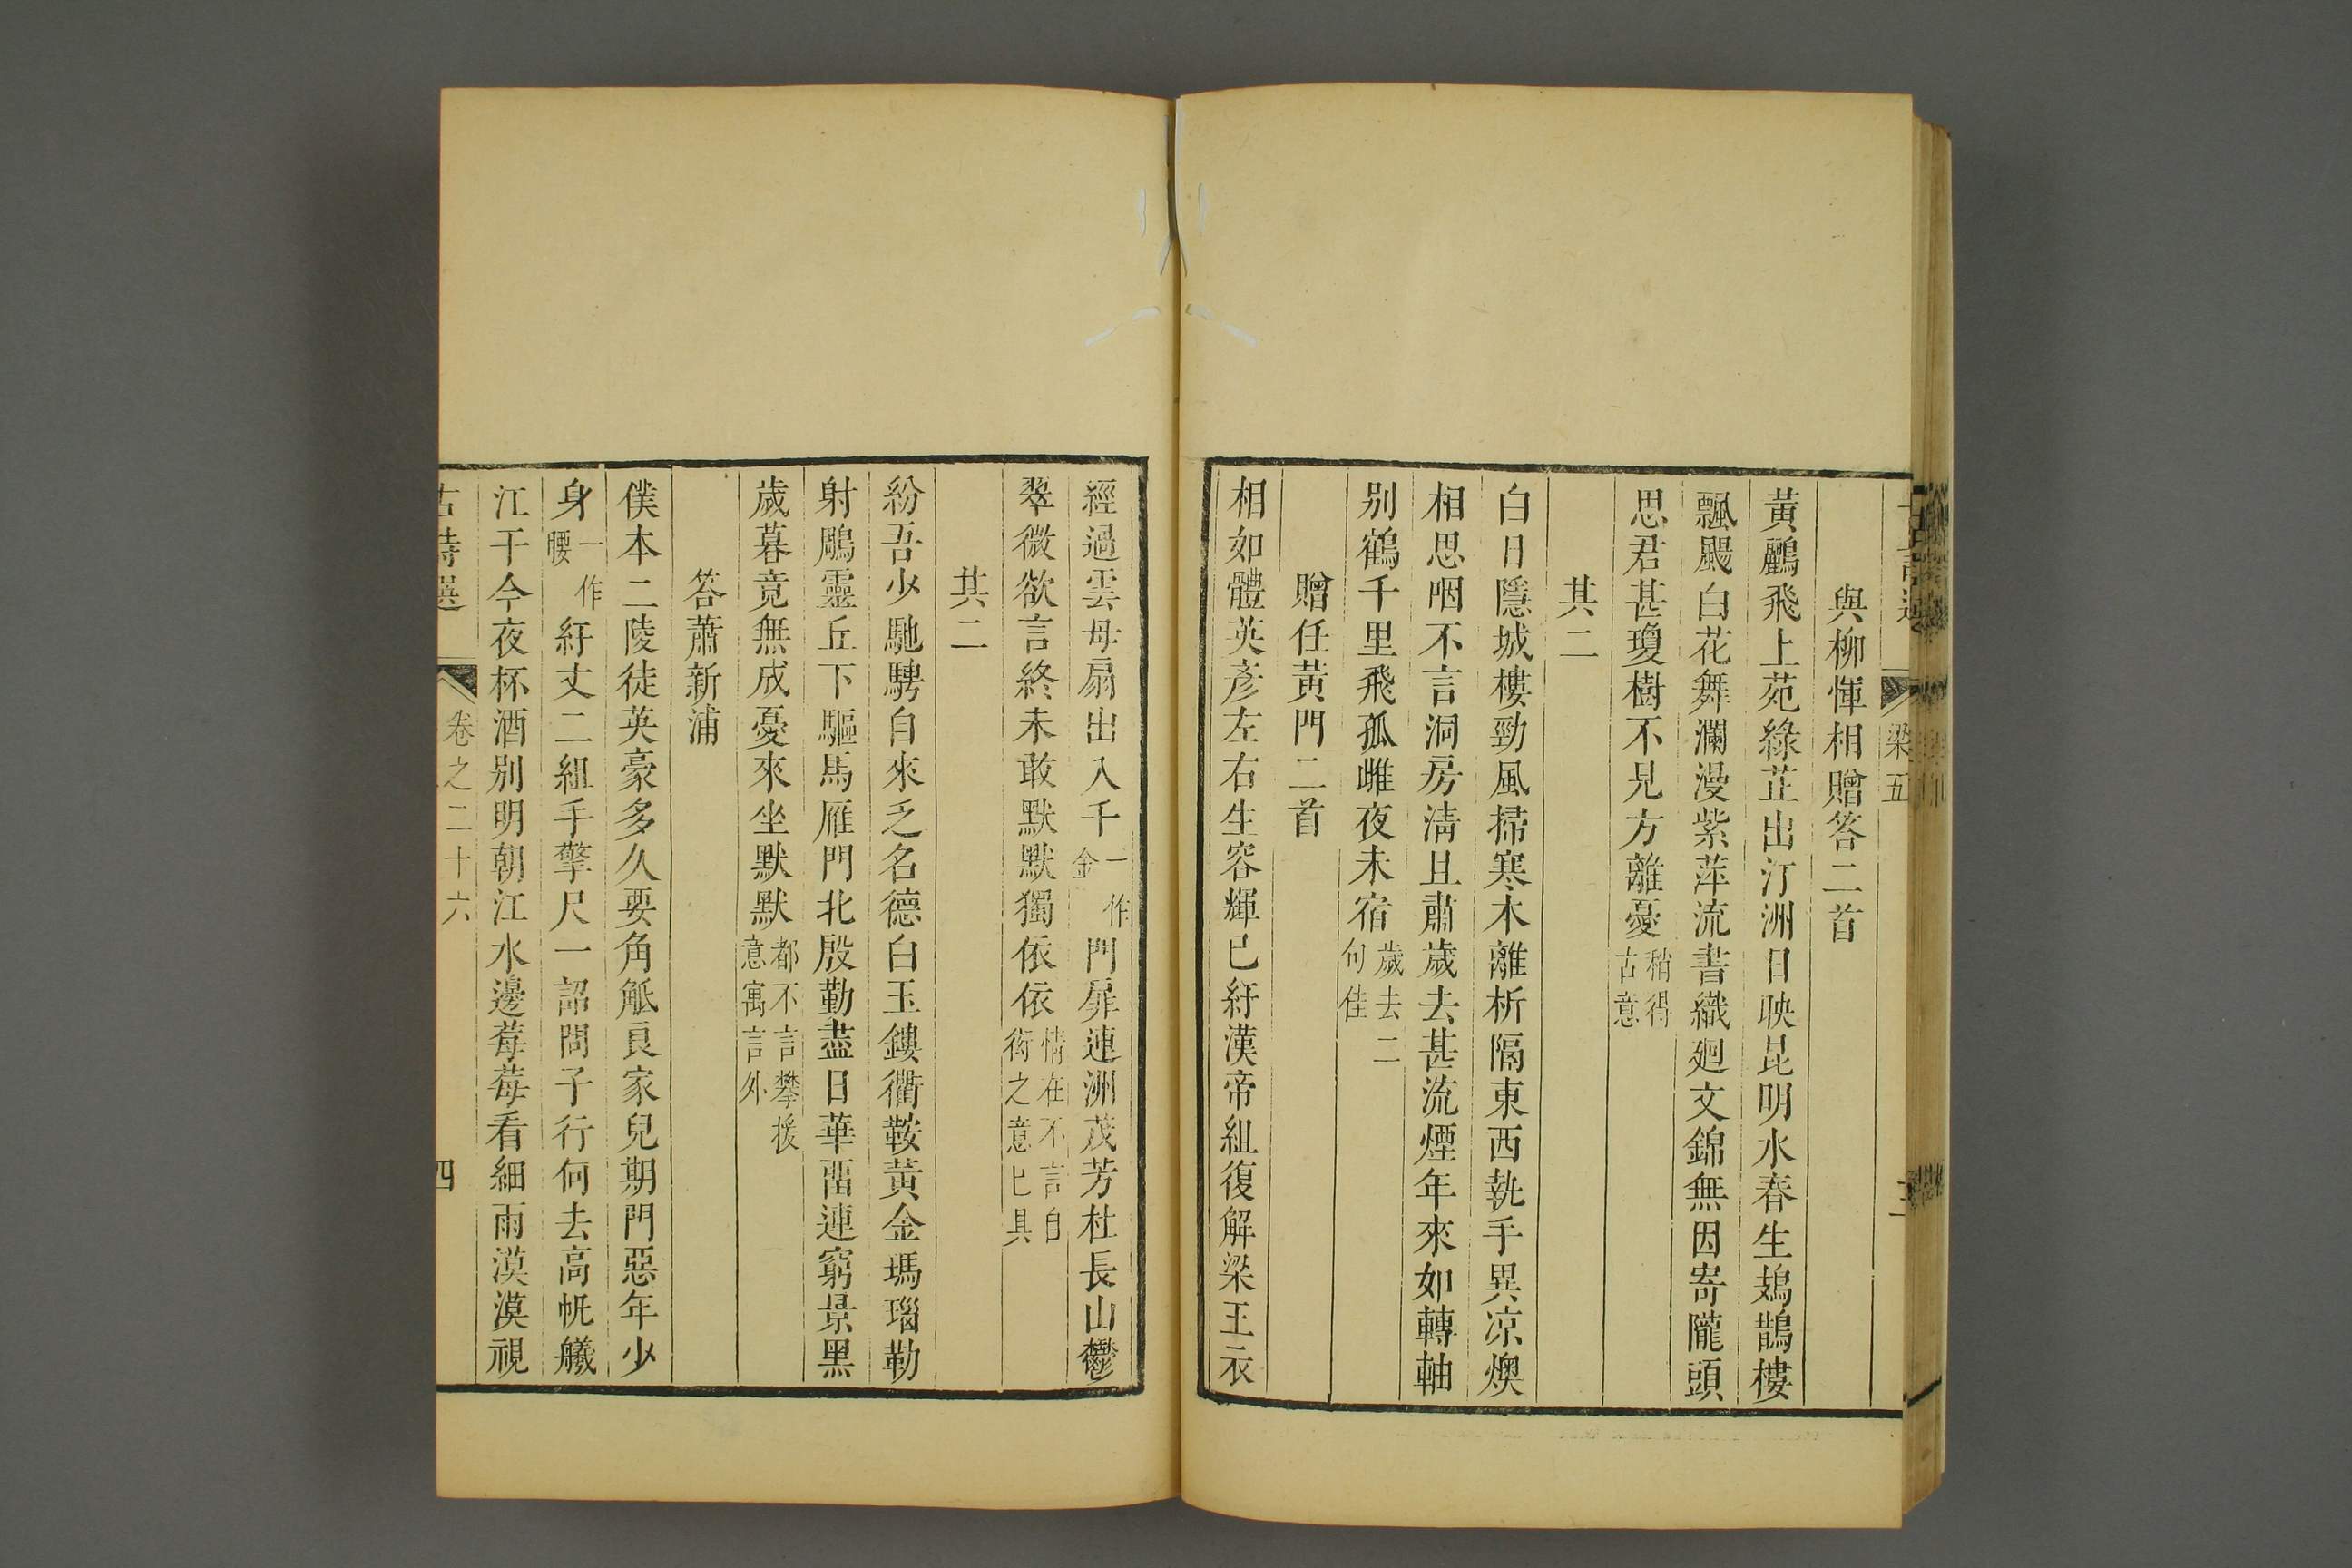 梁五
與柳惲相贈答二首
黃鸝飛上苑綠芷出汀洲日映昆明水春生鳷鵲樓
飄颺白花舞瀾漫紫萍流書織廻文錦無因寄隴頭
思君甚瓊樹不見方離憂稍得古意
其二
白日隱城樓勁風掃寒木離析隔東西執手異凉燠
相思咽不言洞房淸且肅歲去甚流煙年來如轉軸
别鶴千里飛孤雌夜未宿歲去二句佳
贈任黃門二首
相如體英彥左右生容輝已紆漢帝組復解梁王衣
經過雲母扇出入千一作金門扉連洲茂芳杜長山鬱
翠微欲言終未敢默默獨依依情在不言自衒之意已具
其二
紛吾少馳騁自來乏名德白玉鏤衢鞍黃金瑪瑙勒
射鵰靈丘下驅馬雁門北殷勤盡日華畱連窮景黑
歲暮竟無成憂來坐默默都不言攀援意寓言外
答蕭新浦
僕本二陵徒英豪多久要角觝良家兒期門惡年少
身一作腰紆丈二組手擎尺一詔問子行何去高帆艤
江干今夜杯酒别明朝江水邊莓莓看細雨漠漠視
古詩選 卷之二十六 四